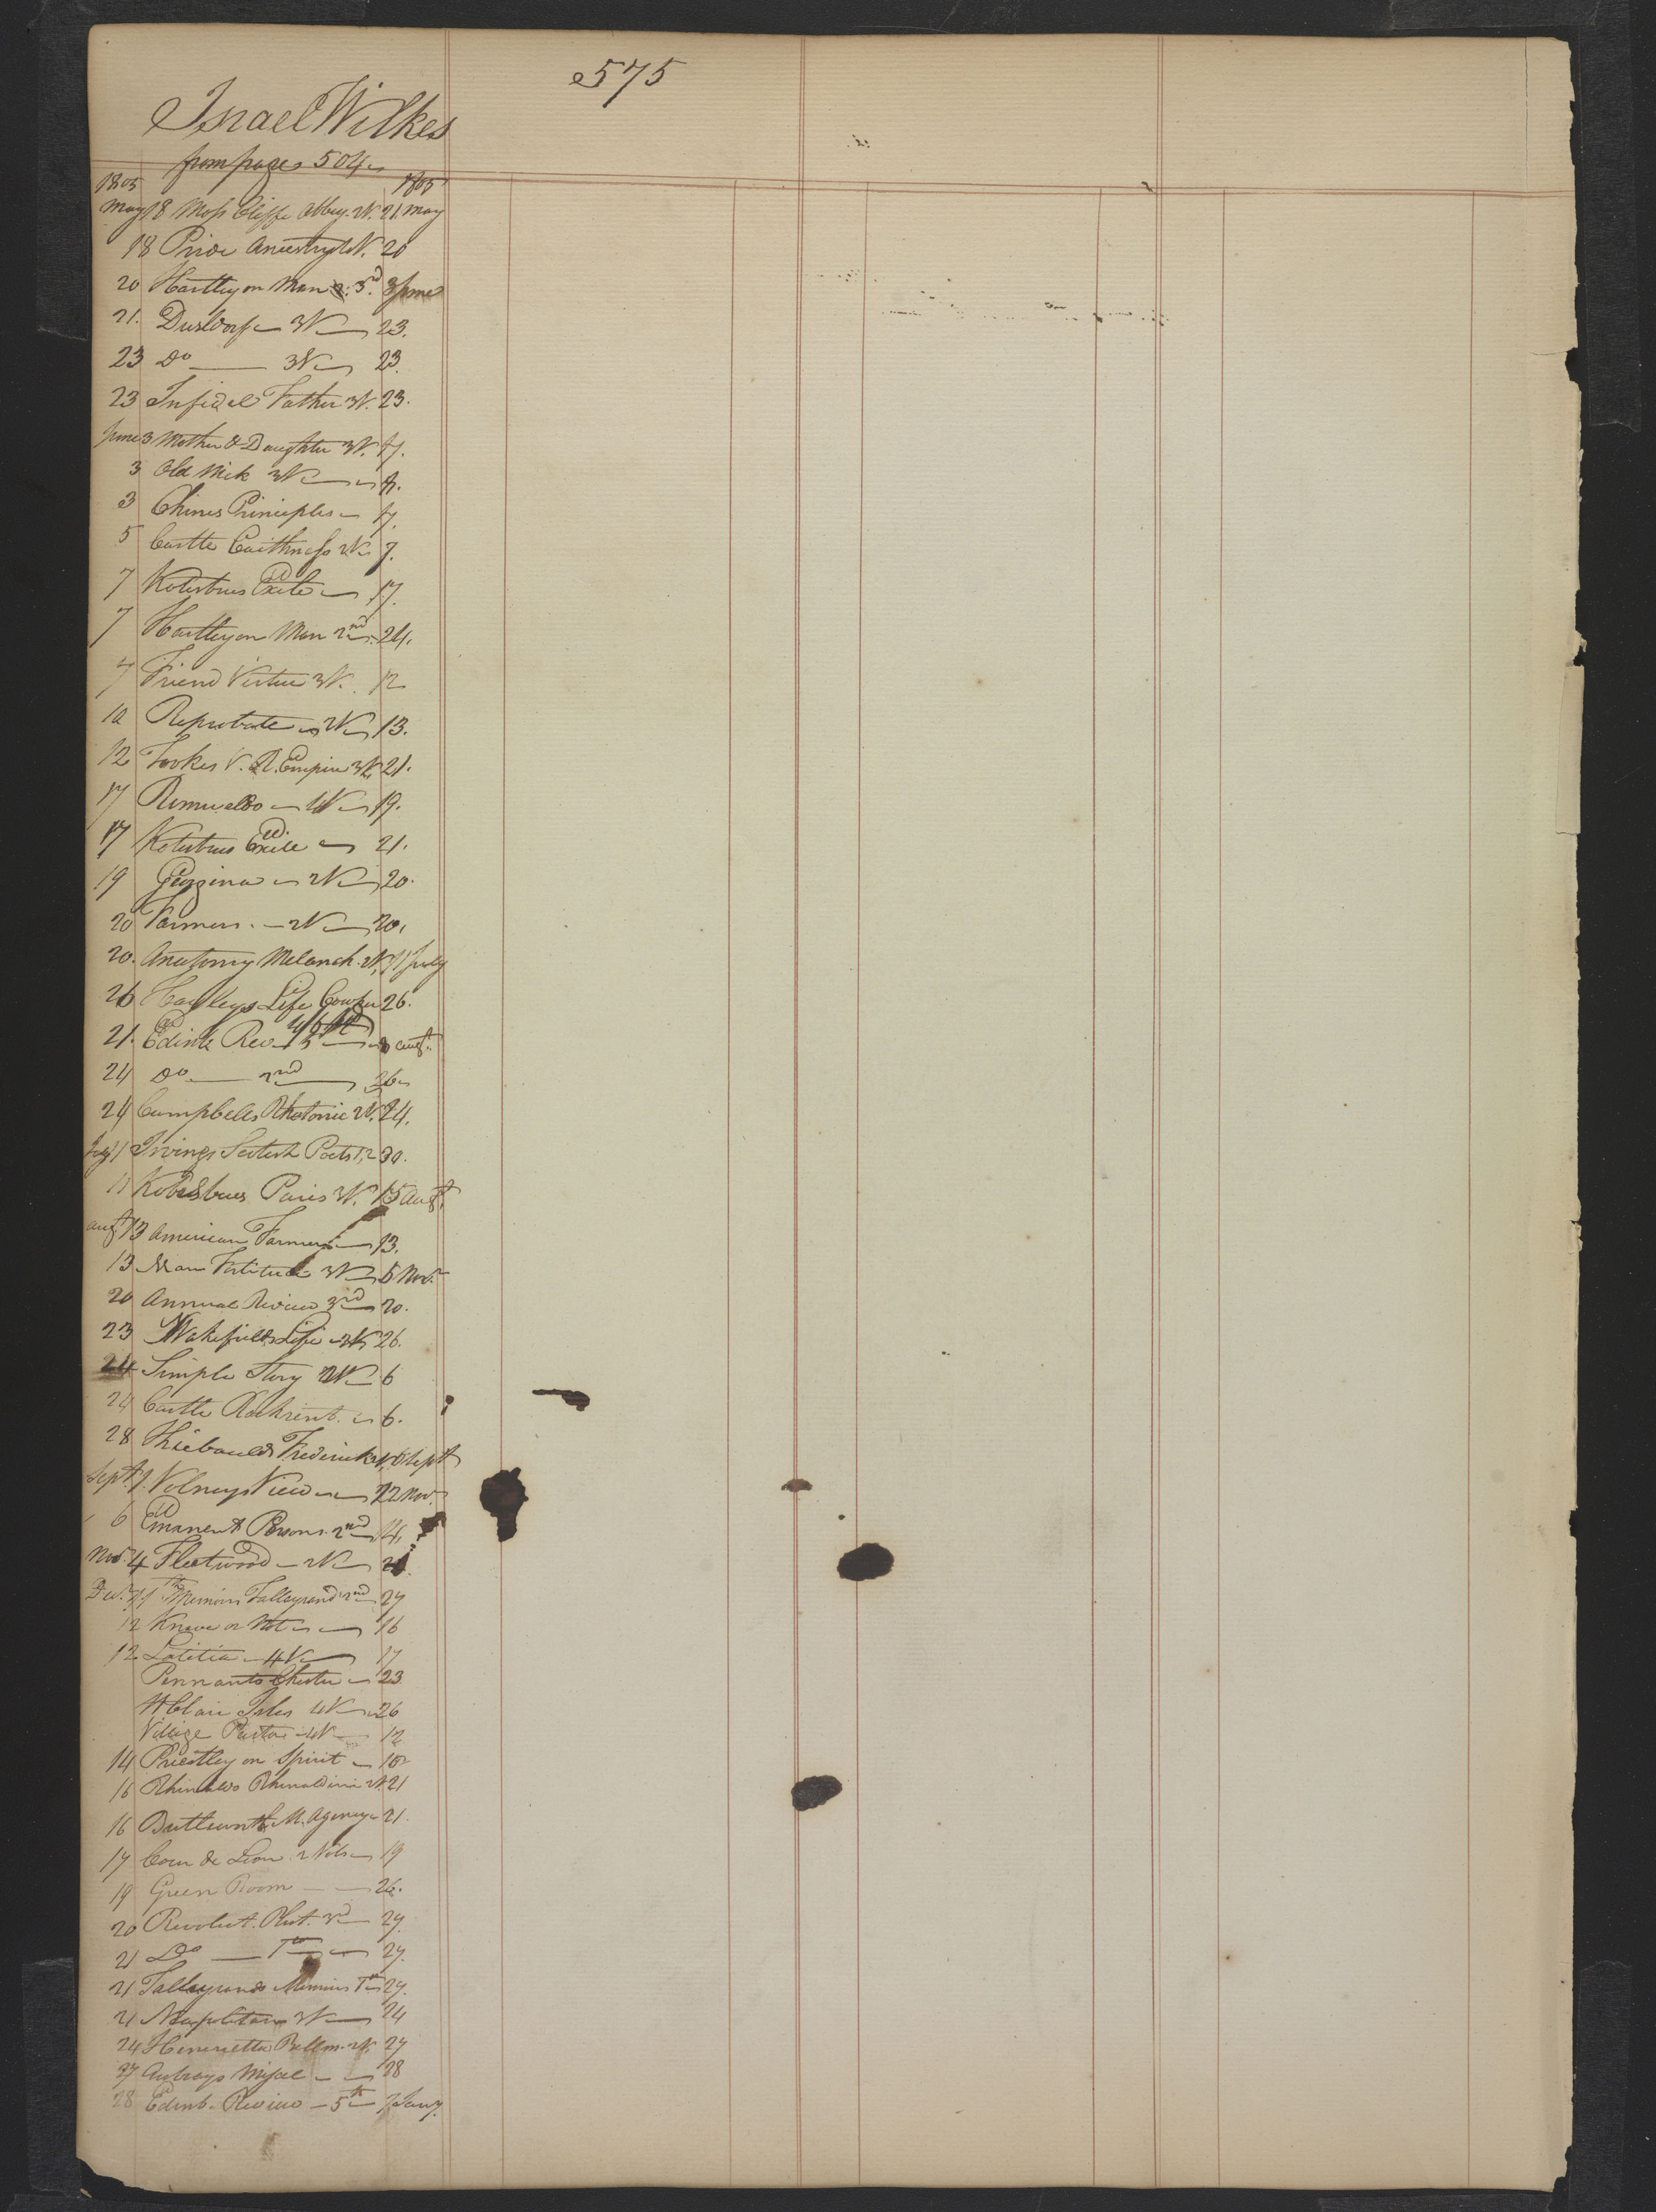 575
Israel Wilkes
from page 504
1805 1805
May 18 Moss Cliffe Abbey. 2V. 21 May
18 Pride Ancestry 4V. 20
20 Hartley on Man 3rd. 3 June
21. Dusldorf 3V 23.
23 Do 3V 23.
23 Infidel Father 3V. 23.
June 3 Mother & Daughter 3V. 7.
3 Old Nick 3V 7.
3 Chines Principles 7.
5 Castle Caithness 2V 7.
7 Kotsebues Exile 17.
7 Hartley on Man 2nd. 24.
7 Friend Virtue 3V. 12
10 Reprobate 2V 13.
12 Tookes V. R. Empire 3V 21.
17 Romualdo 4V 19.
17 Kotsebues Exile 21.
19 Georgina 2V 20.
20 Farmers. 2V 20.
20. Anatomy Melanch. 2V. 11 July
26 Hayleys Life Cowper 26.
21. Edinb Rev. 5 8 Augt.
24 Do 2nd 26
24 Campbells Rhetoric 2V. 24.
July 11 Irvings Scotish Poets 1,2 30.
11 Kotsebues Paris 3V. 15 Augt.
Augt 13 American Farmer 13.
13 Man Fortitude 3V 5 Novr.
20 Annual Review 3rd 20.
23 Wakefields Life 2V 26.
24 Simple Story 2V 6
24 Castle Rackrent. 6.
28 Thiebaulds Frederick 2V, 6 Sept
Sept 7. Volneys View 22 Nov.
6 Emanent Persons. 2nd 14.
Novr. 4 Fleetwood 2V
Decr. 11 Memoirs Talleyrand 2nd 27
12 Knave or Not 16
12 Lætitia 4V 17
Pennants Chester 23
St Clair Isles 4V 26
Village Pastor 4V 12
14 Priestley on Spirit 16
16 Rhinaldo Rhinaldini 2V. 21
16 Butterworth M. Agency 21.
17 Coeur de Lion. 2 Vols 19
19 Green Room 26.
20 Revolut. Plut. 3rd 27.
21 Do 1st 27.
21 Talleyrands Memoirs 1st 27.
21 Neapolitan 3V 24
24 Henrietta Bellm. 2V. 27
27 28
28 Edinb. Review 5th 7 Jany.